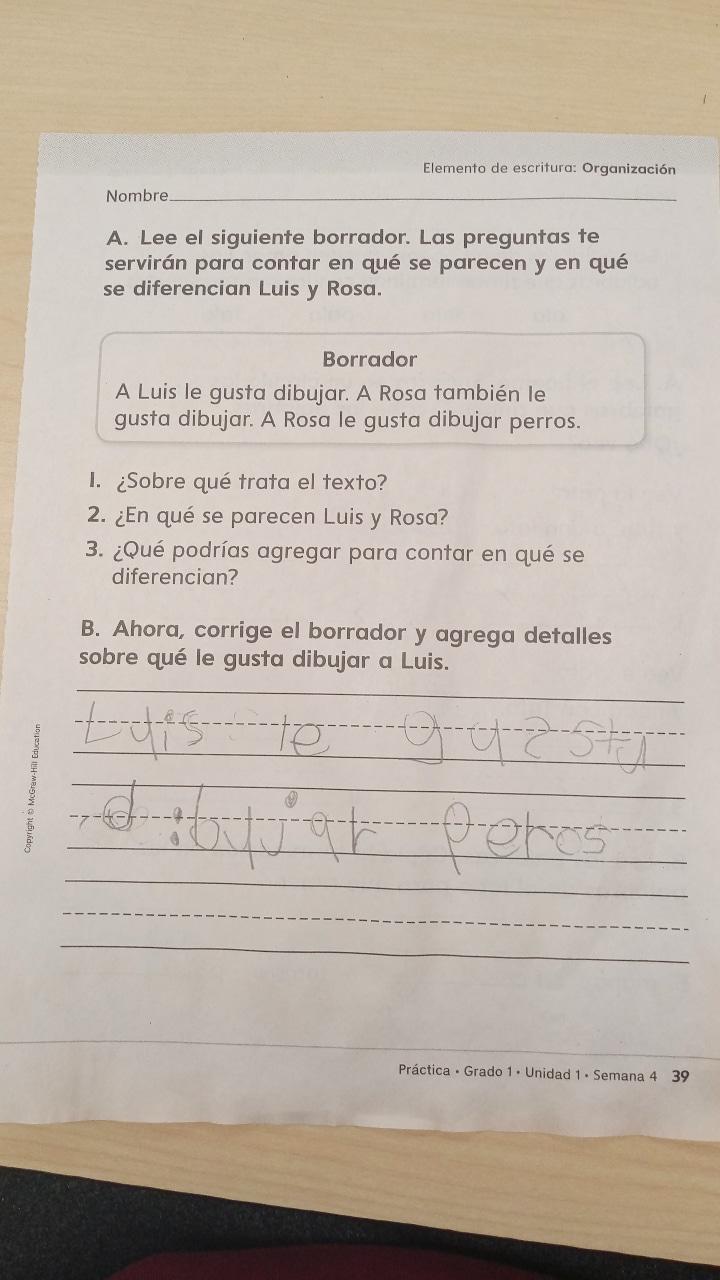 Elemento de escritura: Organización
Nombre
A. Lee el siguiente borrador. Las preguntas te
servirán para contar en qué se parecen y en qué
se diferencian Luis y Rosa.
Borrador
A Luis le gusta dibujar. A Rosa también le
gusta dibujar. A Rosa le gusta dibujar perros.
1. ¿Sobre qué trata el texto?
2. ¿En qué se parecen Luis y Rosa?
3. ¿Qué podrías agregar para contar en qué se
diferencian?
B. Ahora, corrige el borrador y agrega detalles
sobre qué le gusta dibujar a Luis.
Luis le gusta
dibujar peros
Copyright © McGraw-Hill Education
Práctica • Grado 1 • Unidad 1 • Semana 4 39